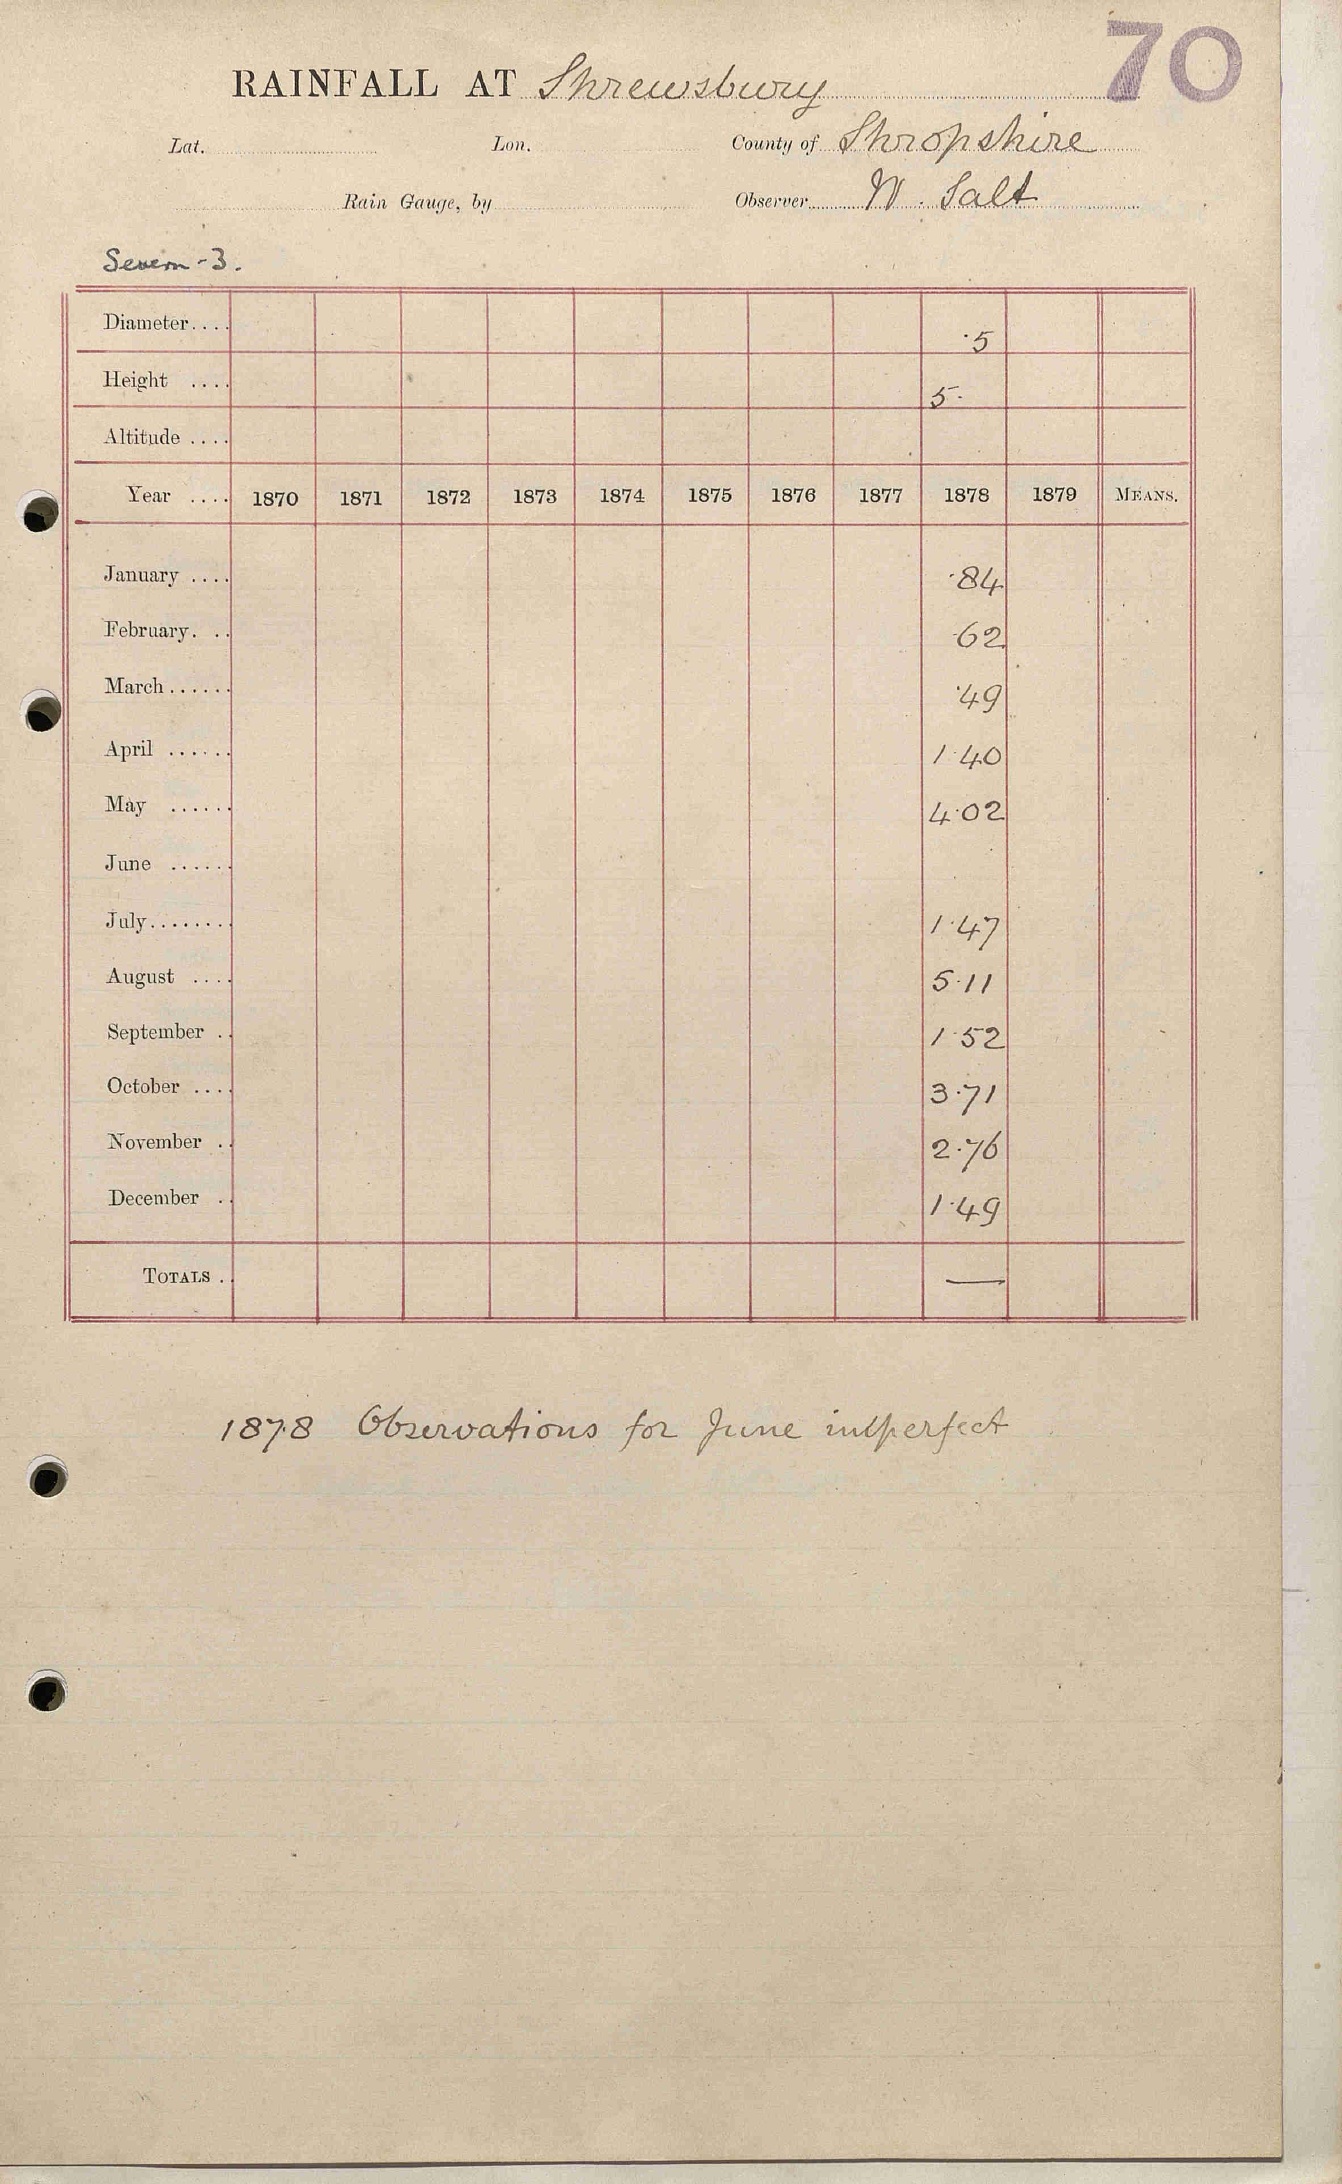 70
RAINFALL AT Shrewsbury
Lat. Lon. County of Shropshire
Rain Gauge, by Observer W. Salt
Severn - 3.
Diameter.... ·5
Height .... 5·
Altitude ....
Year .... 1870 1871 1872 1873 1874 1875 1876 1877 1878 1879 MEANS.
January .... ·84
February. .. ·62
March...... ·49
April ...... 1·40
May ...... 4·02
June ......
July........ 1·47
August .... 5·11
September .. 1·52
October .... 3·71
November .. 2·76
December .. 1·49
TOTALS .. —
1878 Observations for June imperfect